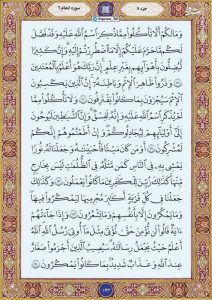 جزء ٨
سوره انعام ٦
وَمَا لَكُمْ أَلَّا تَأْكُلُوا۟ مِمَّا ذُكِرَ ٱسْمُ ٱللَّهِ عَلَيْهِ وَقَدْ فَصَّلَ
لَكُم مَّا حَرَّمَ عَلَيْكُمْ إِلَّا مَا ٱضْطُرِرْتُمْ إِلَيْهِ وَإِنَّ كَثِيرًا
لَّيُضِلُّونَ بِأَهْوَآئِهِم بِغَيْرِ عِلْمٍ إِنَّ رَبَّكَ هُوَ أَعْلَمُ بِٱلْمُعْتَدِينَ
۝١١٩ وَذَرُوا۟ ظَٰهِرَ ٱلْإِثْمِ وَبَاطِنَهُۥٓ إِنَّ ٱلَّذِينَ يَكْسِبُونَ
ٱلْإِثْمَ سَيُجْزَوْنَ بِمَا كَانُوا۟ يَقْتَرِفُونَ ۝١٢٠ وَلَا تَأْكُلُوا۟ مِمَّا
لَمْ يُذْكَرِ ٱسْمُ ٱللَّهِ عَلَيْهِ وَإِنَّهُۥ لَفِسْقٌ وَإِنَّ ٱلشَّيَٰطِينَ لَيُوحُونَ
إِلَىٰٓ أَوْلِيَآئِهِمْ لِيُجَٰدِلُوكُمْ وَإِنْ أَطَعْتُمُوهُمْ إِنَّكُمْ
لَمُشْرِكُونَ ۝١٢١ أَوَمَن كَانَ مَيْتًا فَأَحْيَيْنَٰهُ وَجَعَلْنَا لَهُۥ نُورًا
يَمْشِى بِهِۦ فِى ٱلنَّاسِ كَمَن مَّثَلُهُۥ فِى ٱلظُّلُمَٰتِ لَيْسَ بِخَارِجٍ
مِّنْهَا كَذَٰلِكَ زُيِّنَ لِلْكَٰفِرِينَ مَا كَانُوا۟ يَعْمَلُونَ ۝١٢٢ وَكَذَٰلِكَ
جَعَلْنَا فِى كُلِّ قَرْيَةٍ أَكَٰبِرَ مُجْرِمِيهَا لِيَمْكُرُوا۟ فِيهَا
وَمَا يَمْكُرُونَ إِلَّا بِأَنفُسِهِمْ وَمَا يَشْعُرُونَ ۝١٢٣ وَإِذَا جَآءَتْهُمْ
ءَايَةٌ قَالُوا۟ لَن نُّؤْمِنَ حَتَّىٰ نُؤْتَىٰ مِثْلَ مَآ أُوتِىَ رُسُلُ ٱللَّهِ ٱللَّهُ
أَعْلَمُ حَيْثُ يَجْعَلُ رِسَالَتَهُۥ سَيُصِيبُ ٱلَّذِينَ أَجْرَمُوا۟ صَغَارٌ
عِندَ ٱللَّهِ وَعَذَابٌ شَدِيدٌۢ بِمَا كَانُوا۟ يَمْكُرُونَ ۝١٢٤
١٤٣